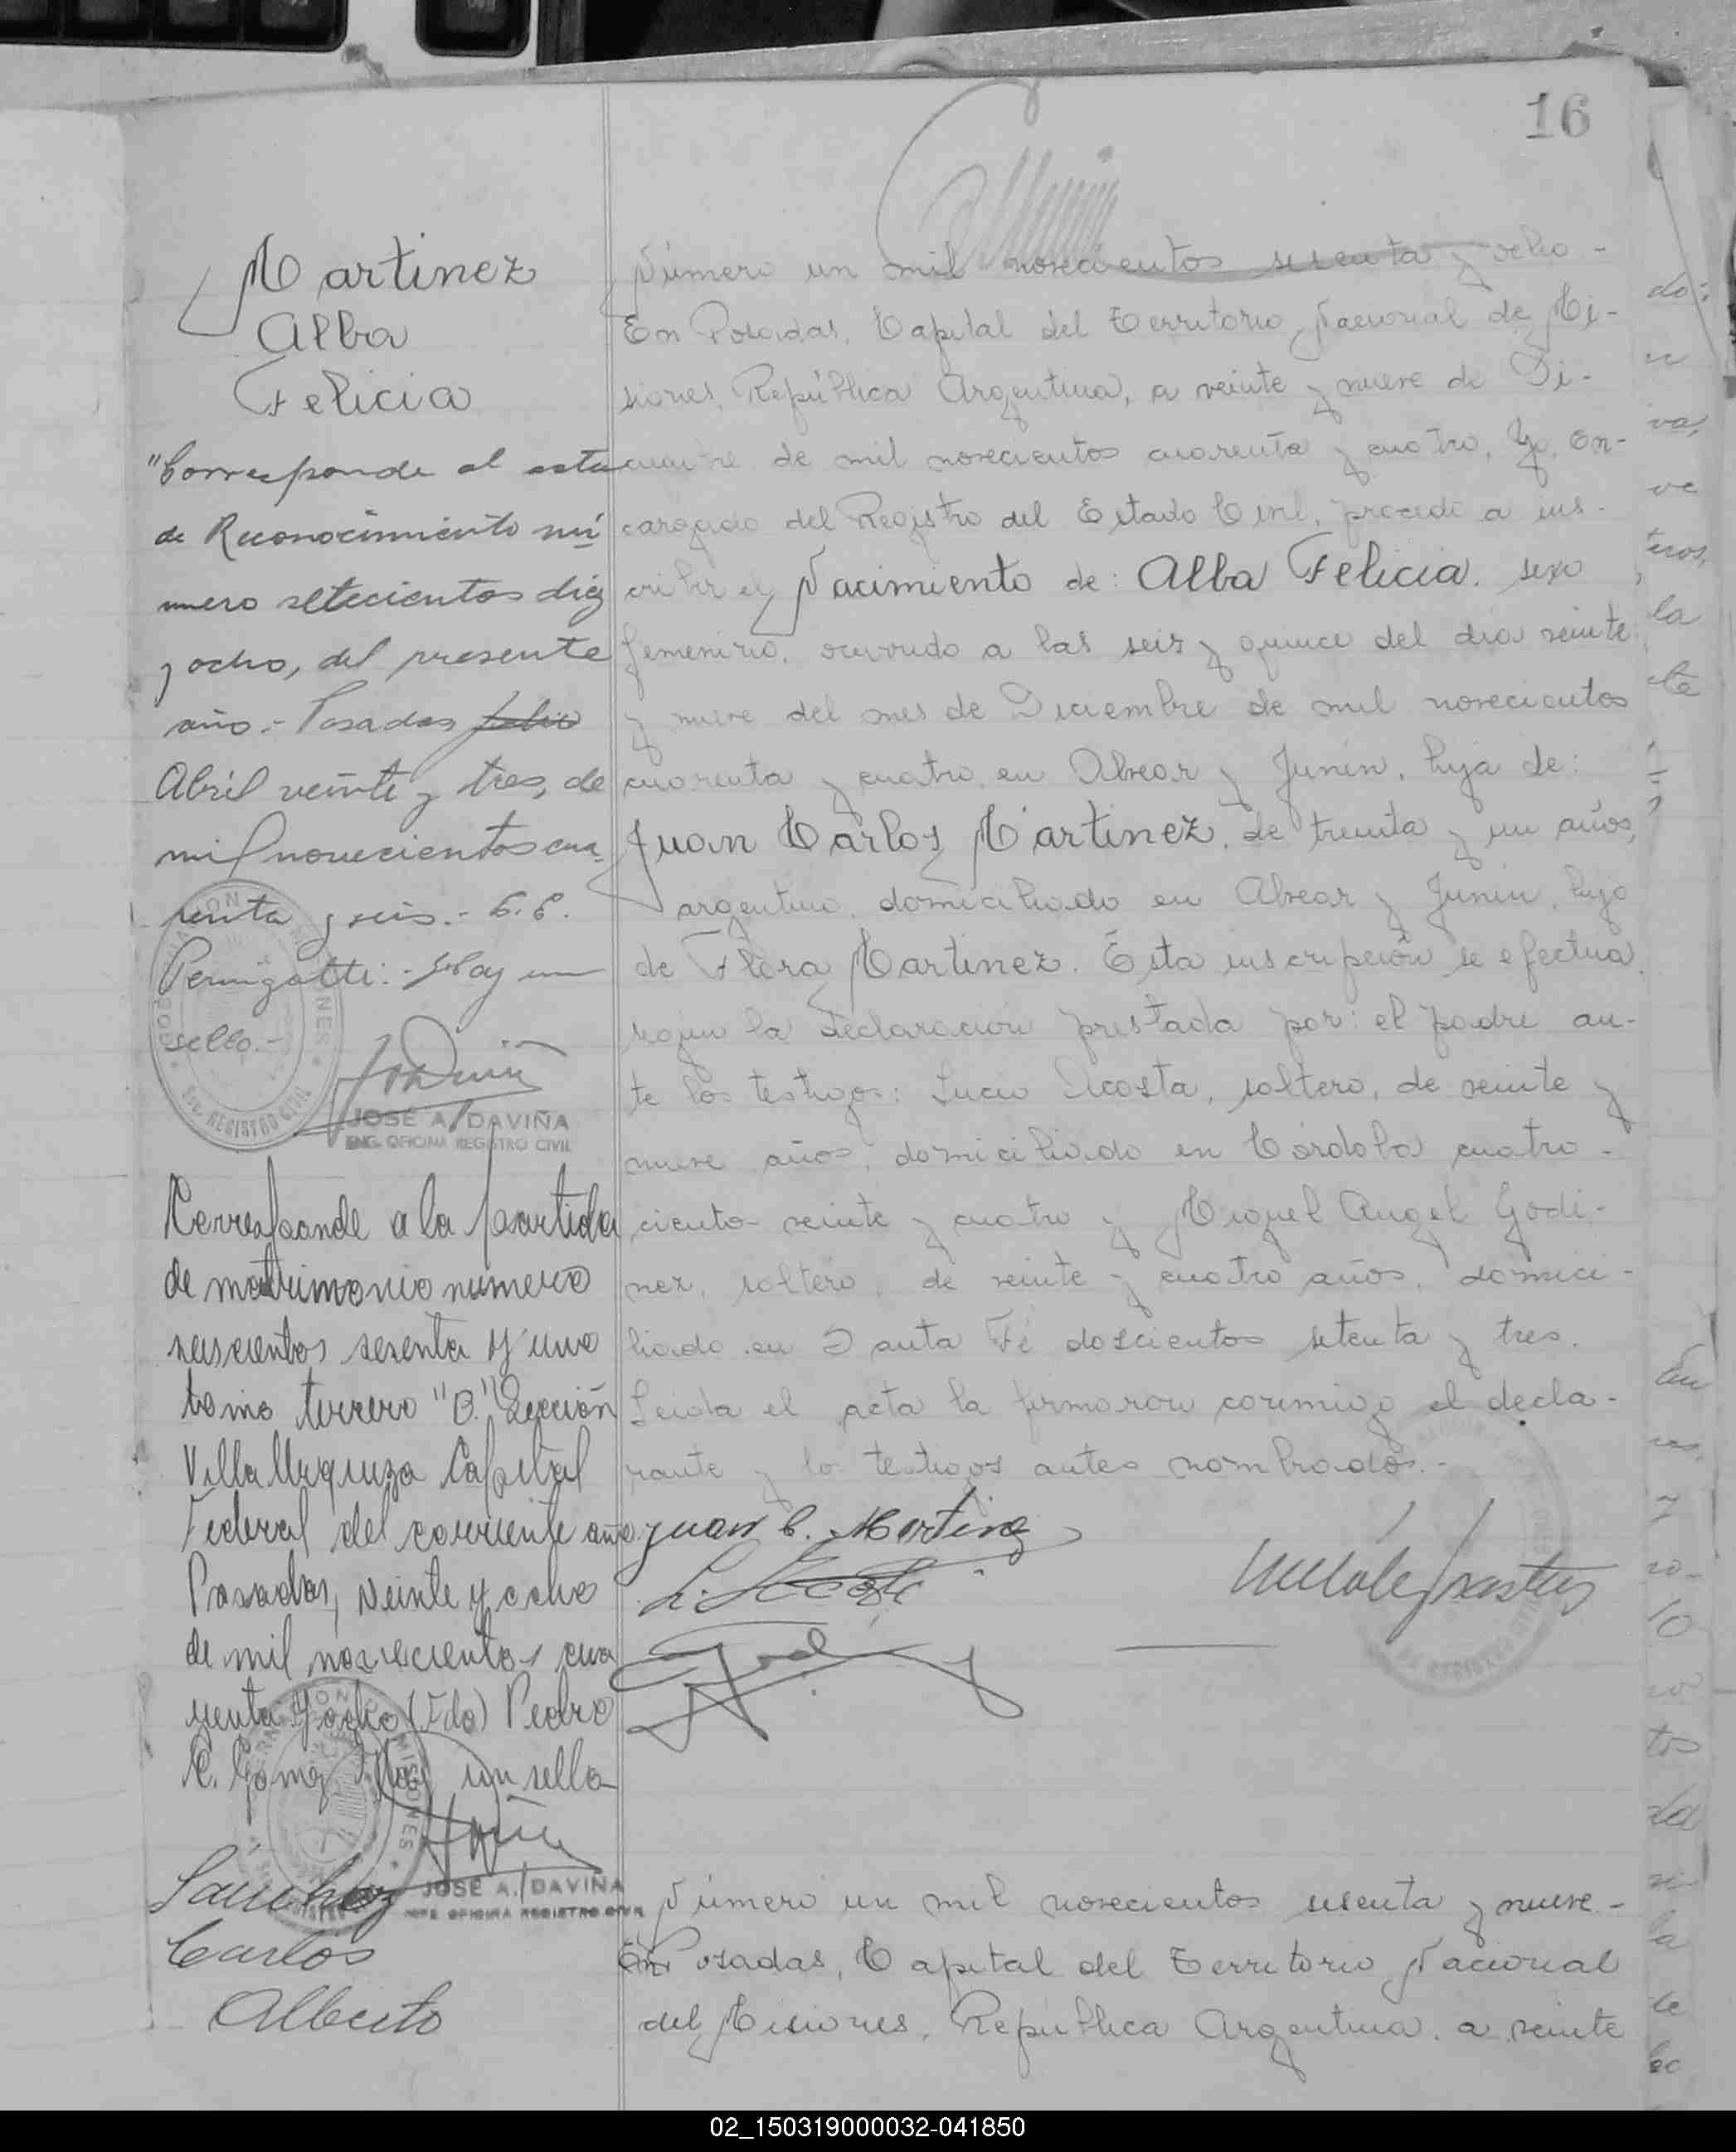 16
Martinez
Alba
Felicia
"Corresponde al acta
de Reconocimiento nú
mero setecientos diez
y ocho, del presente
año.- Posadas
Abril veinte y tres, de
mil novecientos cua
renta y seis.- E.E.
Pernigotti.- Hay un
sello.-
JOSÉ A. DAVIÑA
ENC. OFICINA REGISTRO CIVIL
Corresponde a la partida
de matrimonio numero
seiscientos sesenta y uno
tomo tercero "B." Sección
Villa Urquiza Capital
Federal del corriente año.
Posadas, veinte y ocho
de mil novecientos cua
renta y ocho (Fdo) Pedro
C. Gomez Hay un sello
JOSÉ A. DAVIÑA
JEFE OFICINA REGISTRO CIVIL
Número un mil novecientos sesenta y ocho -
En Posadas, Capital del Territorio Nacional de Mi-
siones, República Argentina, a veinte y nueve de Di-
ciembre de mil novecientos cuarenta y cuatro, Yo, En-
cargado del Registro del Estado Civil, procedo a ins-
cribir el Nacimiento de: Alba Felicia. sexo
femenino, ocurrido a las seis y quince del dia veinte
y nueve del mes de Diciembre de mil novecientos
cuarenta y cuatro, en Alvear y Junin, hija de:
Juan Carlos Martinez, de treinta y un años,
argentino, domiciliado en Alvear y Junin, hijo
de Flora Martinez. Esta inscripción se efectua
segun la declaración prestada por: el padre an-
te los testigos: Lucio Acosta, soltero, de veinte y
nueve años, domiciliado en Córdoba cuatro-
cientos veinte y cuatro y Miguel Angel Godi-
nez, soltero, de veinte y cuatro años, domici-
liado en Santa Fé doscientos setenta y tres.
Leida el acta la firmaron conmigo el decla-
rante y los testigos antes nombrados.-
Juan C. Martinez
L. Acosta
Sanchez
Carlos
Alberto
Número un mil novecientos sesenta y nueve.-
En Posadas, Capital del Territorio Nacional
del Misiones, República Argentina, a veinte
02_150319000032-041850